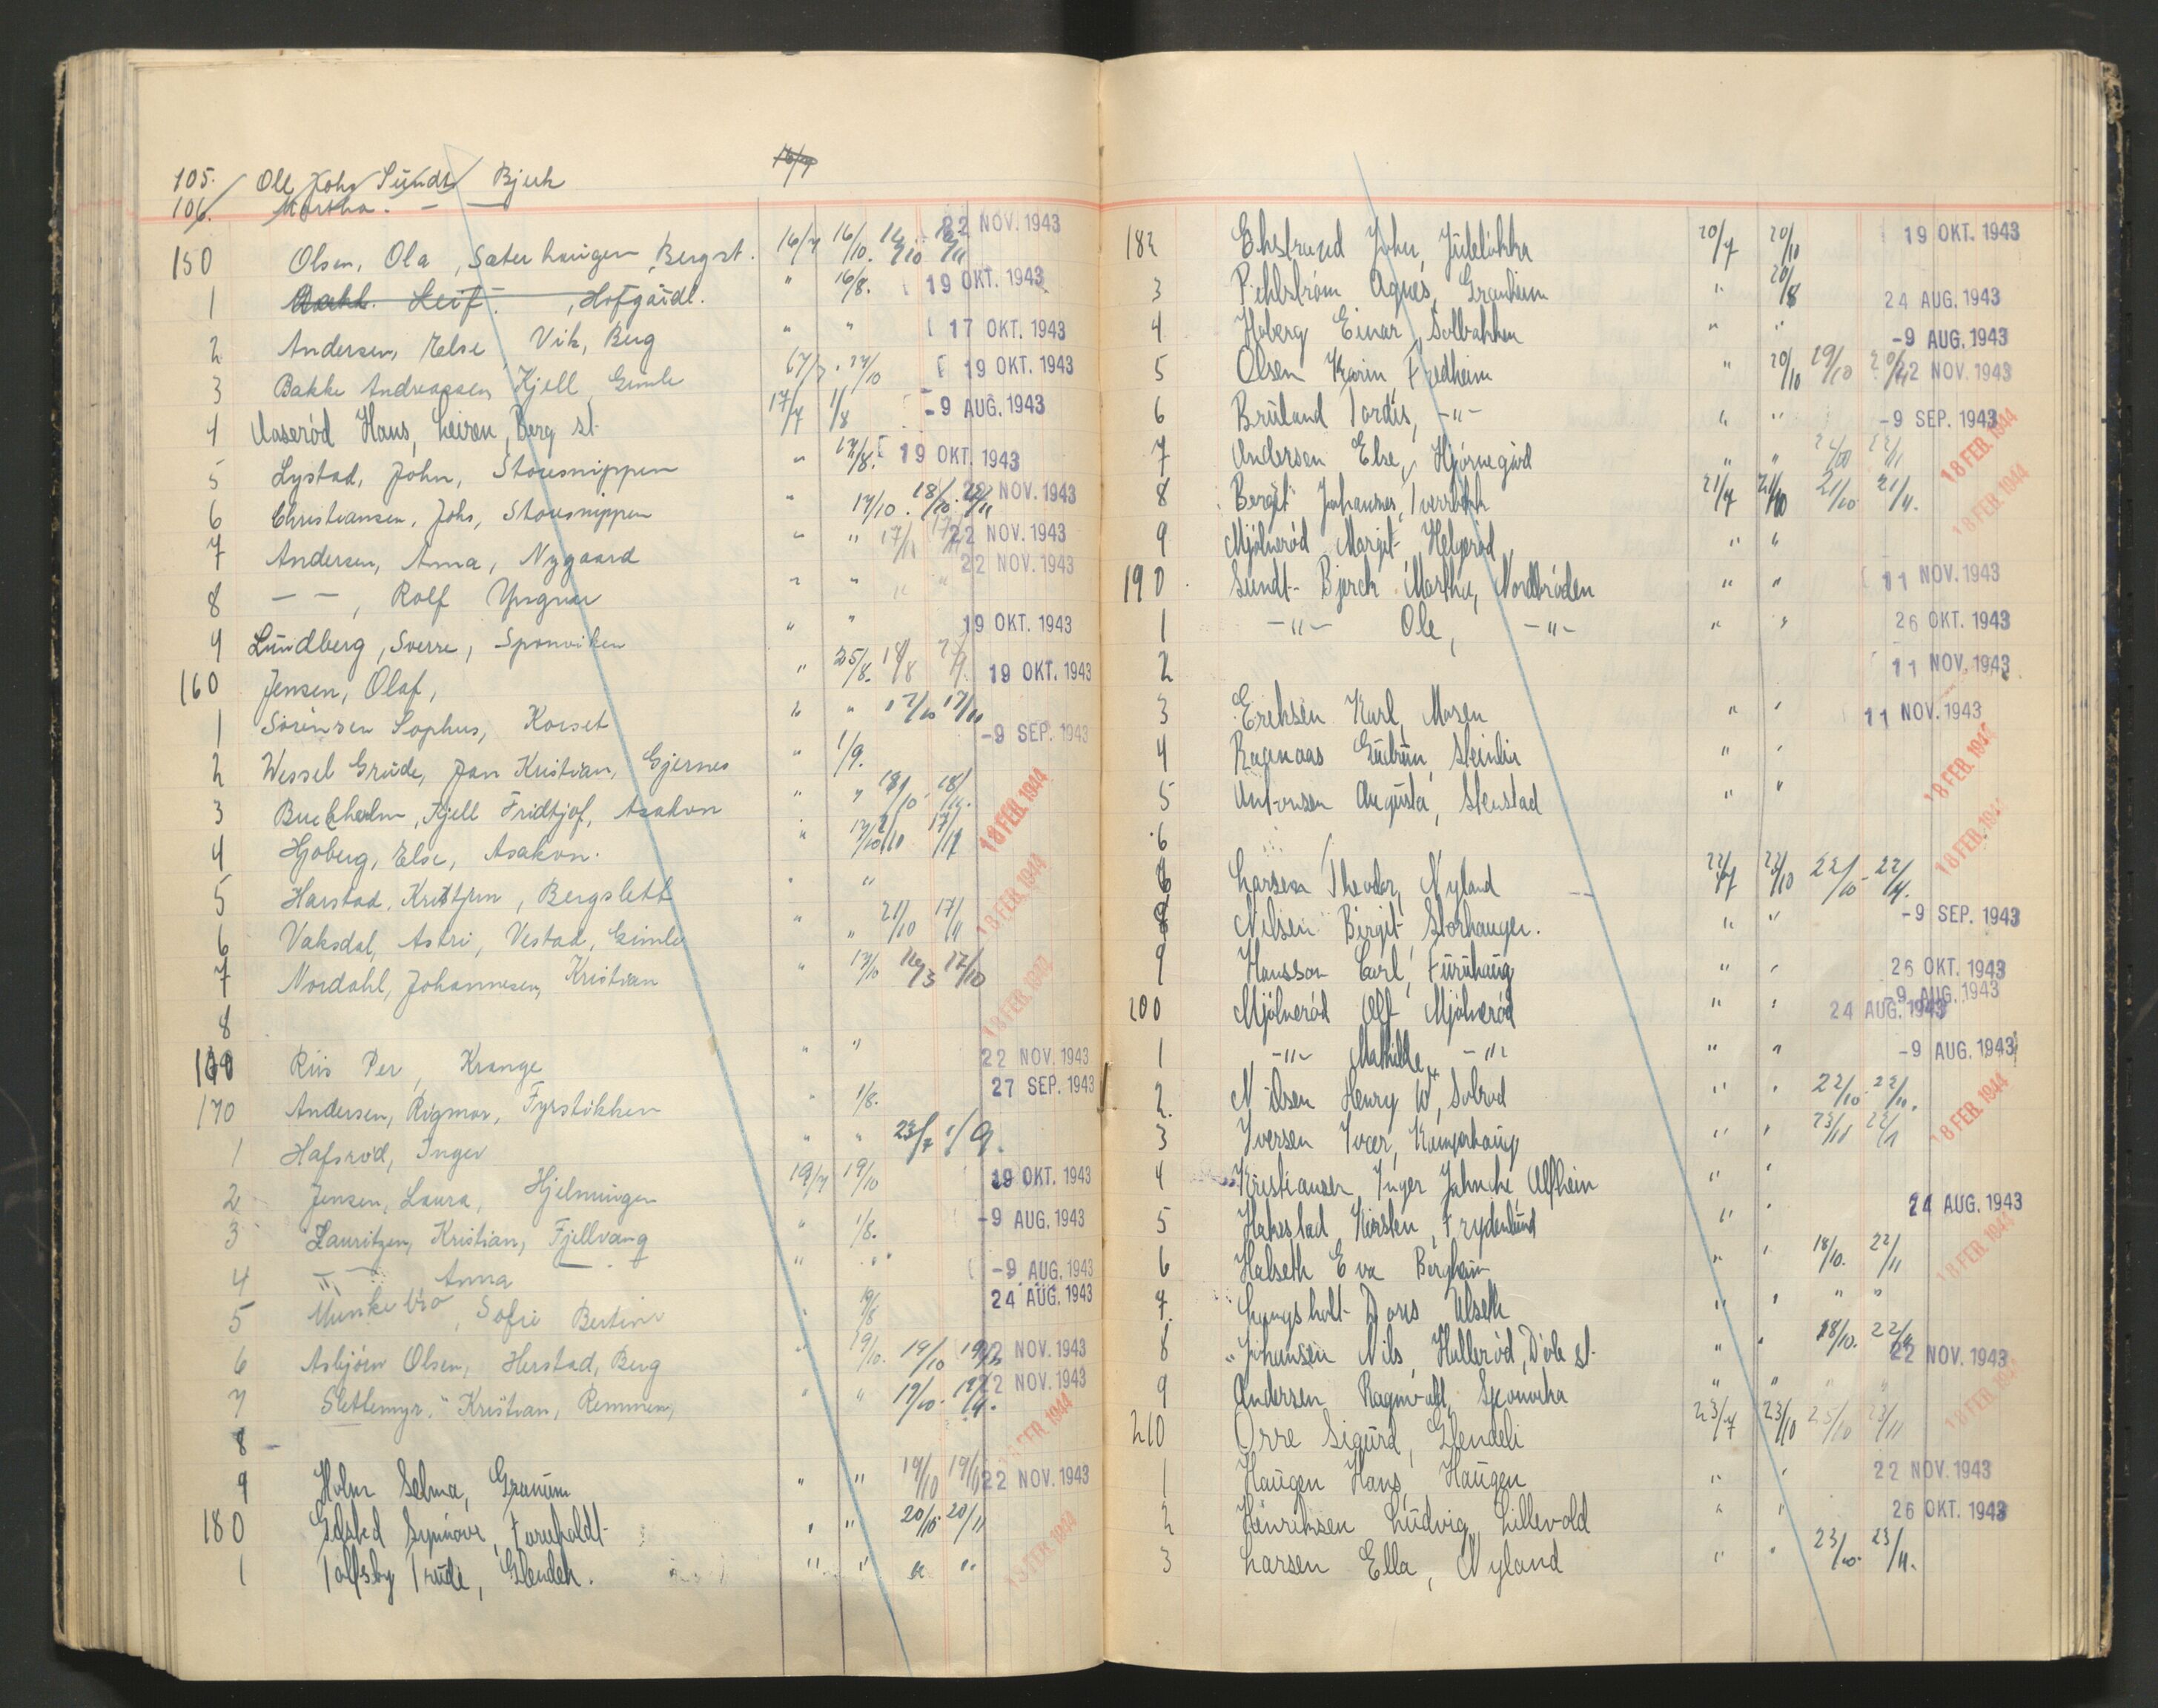 105. Ole Johs Sundt Bjerk 16/7
106. Martha. — —
150 Olsen, Ola, Sæterhaugen, Bergst. 16/7 16/10. 22 NOV. 1943
1 Bakk. Leif. , Hofgaidl. " 16/8. 19 OKT. 1943
2 Andersen, Else Vik, Berg " " 17 OKT. 1943
3 Bakke Andreassen, Kjell Gimle 17/10 19 OKT. 1943
4 Aaserød Hans, Leiren, Berg st. 17/7 1/8 -9 AUG. 1943
5 Lystad, John, Storesnippen " 17/8. 19 OKT. 1943
6 Christiansen, Johs, Storesnippen " 17/10. 18/10. 22 NOV. 1943
7 Andersen, Anna, Nygaard " " 17/11 22 NOV. 1943
8 — — , Rolf " " " " 22 NOV. 1943
9 Lundberg, Sverre, Sponviken " " 19 OKT. 1943
160 Jensen, Olaf, " 25/8. 18/8 19 OKT. 1943
1 Sørensen Sophus, Korset " " 17/10 17/11
2 Wessel Grude, Jan Kristian, Gjernes " 1/9. -9 SEP. 1943
3 Buckholm, Kjell Fridtjof, Asakon " " 18/10 - 18/11. 18 FEB. 1944
4 Hjoberg, Else, Asakon. " 17/10 17/11
5 Harstad, Kristjan, Bergslett " " 18 FEB. 1944
6 Vaksdal, Astri, Vestad, Gimle " " 21/10 17/11
7 Nordahl, Johannesen, Kristian " 17/10 17/10 18 FEB. 1944
8
Riis Per, Krange " " 22 NOV. 1943
170 Andersen, Rigmor, Fyrstikken " 1/8. 27 SEP. 1943
1 Hafsrød, Inger " " 23/7 1/9.
2 Jensen, Laura, Hjelmungen 19/7 19/10 19 OKT. 1943
3 Lauritzen, Kristian, Fjellvang " 1/8. -9 AUG. 1943
4 — " — Anna " " -9 AUG. 1943
5 Munkebro, Sofie Bertine " 19/8 24 AUG. 1943
6 Asbjørn Olsen, Herstad, Berg " 19/10. 19/10 22 NOV. 1943
7 Slettemyr, Kristian, Remmen, " " 19/10. 19/11. 22 NOV. 1943
8 - 18 FEB. 1944
9 Holm Selma, Granum " " 19/10 19/11 22 NOV. 1943
180 Synnøve, Furuholdt " " 20/10 20/11
1 Tolfsby Trude, Glendeh. " " " " 18 FEB. 1944
182 Ekstrand John, 20/7 20/10 19 OKT. 1943
3 Pihlstrøm Agnes, Granheim " 20/8 24 AUG. 1943
4 Hoberg Einar, Solbakken " " -9 AUG. 1943
5 Olsen Karin, Fredheim " 20/10 19/10 22 NOV. 1943
6 Bruland Tordis, -"- " " -9 SEP. 1943
7 Andersen Else, Hjørnegård " " 18 FEB. 1944
8 Berget Johannes, 21/7 21/10 21/10 21/11. 18 FEB. 1944
9 Mjølnerød Margit Helgerød " "
190 Sundt-Bjerck Martha, Nordbråden " " 11 NOV. 1943
1 -"- Ole, -"- " " 26 OKT. 1943
2 11 NOV. 1943
3 Eriksen Karl, Mosen " " 11 NOV. 1943
4 Ragnaas Gudrun, Steinlia " " 18 FEB. 1944
5 Antonsen Augusta, Stenstad " "
6 18 FEB. 1944
Larsen Theodor, Nyland 22/7 22/10 22/10 - 22/11.
8 Nilsen Birgit Storhaugen. " " -9 SEP. 1943
9 Hansson Carl, Furuhaug " " 26 OKT. 1943
-9 AUG. 1943
200 Mjølnerød Alf Mjølnerød " " 24 AUG. 1943
1 -"- Mathilde, -"- " " -9 AUG. 1943
2. Nilsen Henry W, Solrød " " 22/10. 22/11.
3 Iversen Iver, Kamperhaug " " 18 FEB. 1944
4 Kristiansen Inger Jahncke, Alfheim " "
5 Hakestad Kirsten, Frydenlund " " 24 AUG. 1943
6 Halseth Eva Bergheim " " 18/10. 22/11 18 FEB. 1944
7. Lungsholt Doris Ulseth " " " "
8 Johansen Nils, Hallerød, Dole st. " " 18/10. 22/11 22 NOV. 1943
9 Andersen Ragnvald, Sponvika " " 18 FEB. 1944
210 Orre Sigurd, Glendeli 23/7 23/10 23/11
1 Haugen Hans, Haugen " " 22 NOV. 1943
2 Henriksen Ludvig, Lillevold " " 26 OKT. 1943
3 Larsen Ella, Nyland " " 23/10. 23/11.